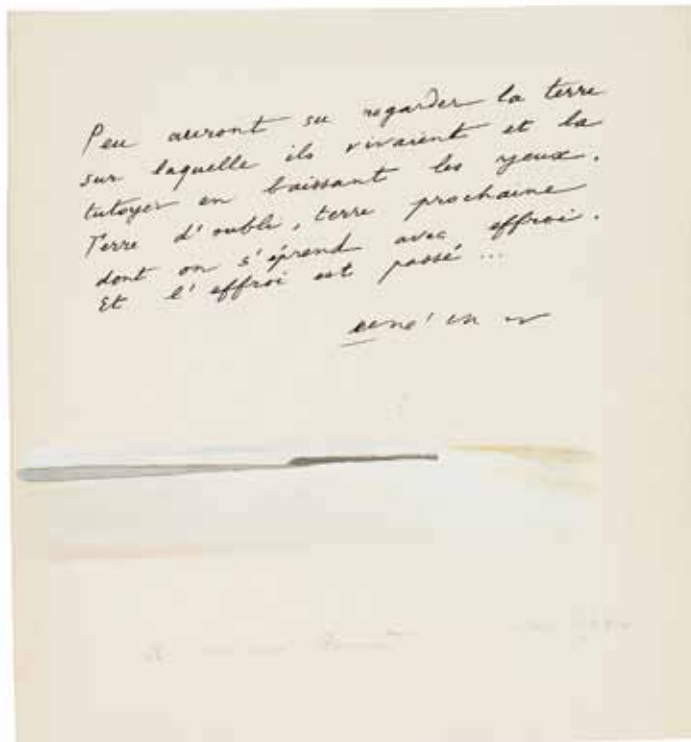 Peu auront su regarder la terre
sur laquelle ils vivaient et la
tutoyer en baissant les yeux.
Terre d'oubli, terre prochaine
dont on s'éprend avec effroi.
Et l'effroi est passé ...